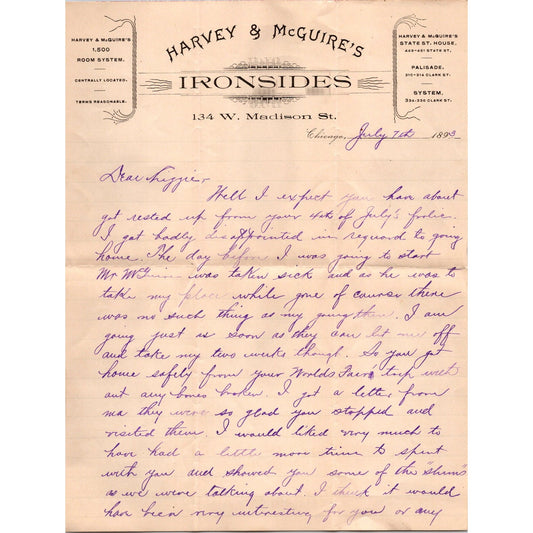 HARVEY & McGUIRE'S
1,500
ROOM SYSTEM.
CENTRALLY LOCATED.
TERMS REASONABLE.
HARVEY & McGUIRE'S
IRONSIDES
134 W. Madison St.
HARVEY & McGUIRE'S
STATE ST. HOUSE,
PALISADE.
310-314 CLARK ST.
SYSTEM,
Chicago, July 7th 1893
Dear Lizzie,
Well I expect you have about
got rested up from your 4th of July's frolic.
I got badly disappointed in reguard to going
home. The day before I was going to start
Mr McGuire was taken sick and as he was to
take my place while gone of course there
was no such thing as my going then. I am
going just as soon as they can let me off
and take my two weeks though. So you got
home safely from your Worlds Fair trip with
out any bones broken. I got a letter from
ma they were so glad you stopped and
visited them. I would liked very much to
have had a little more time to spent
with you and showed you some of the "Slums"
as we were talking about. I think it would
have been very interesting for you or any